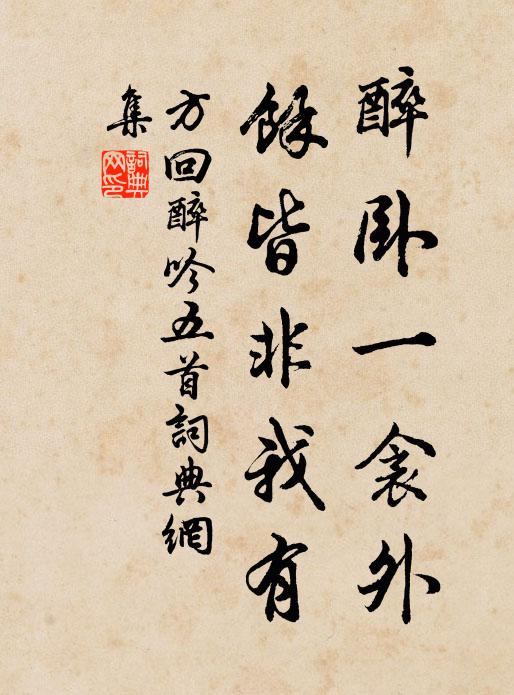 醉臥一衾外
餘皆非我有
方回醉吟五首詞典網
集
詞典網印